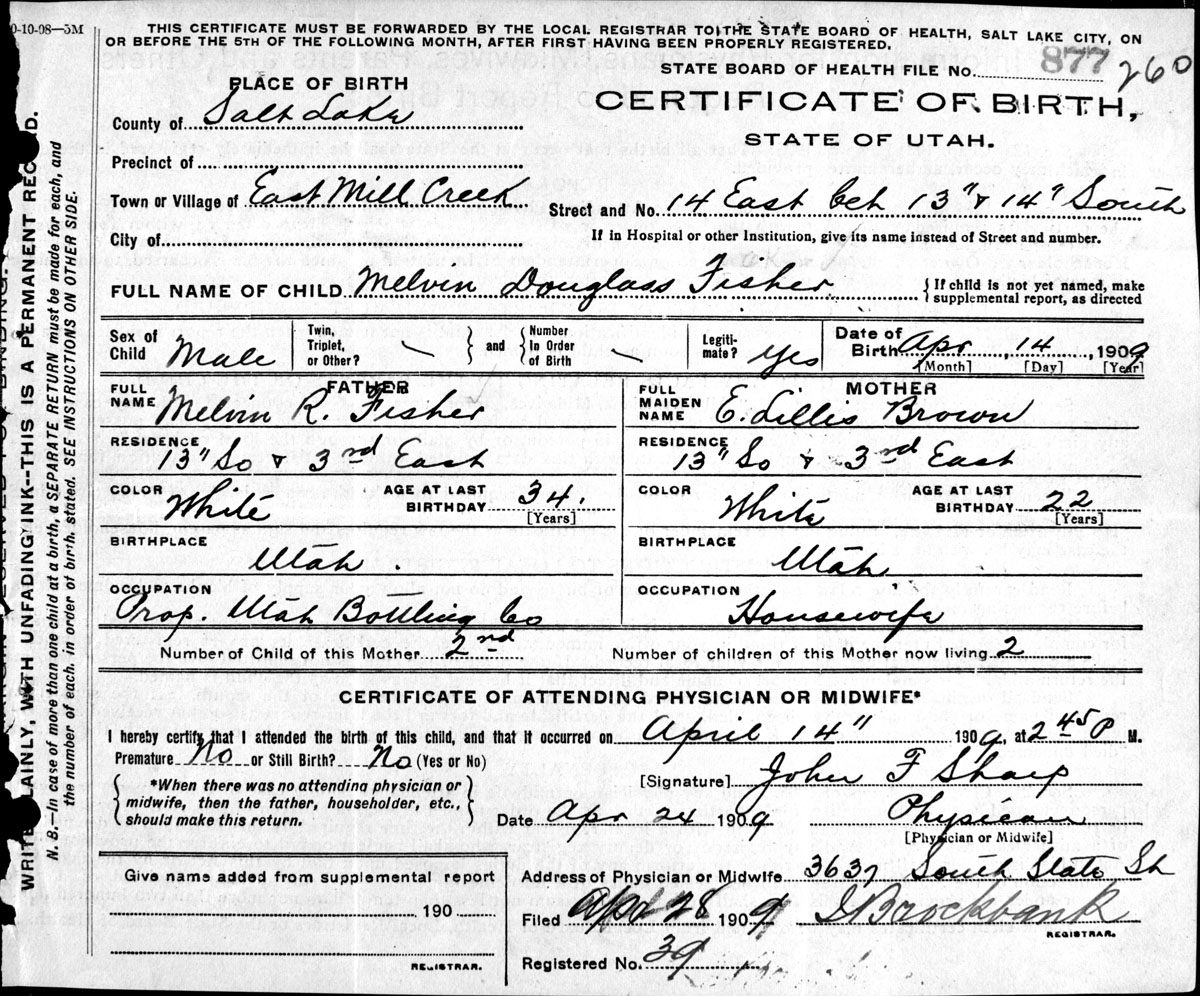 0-10-08—5M
THIS CERTIFICATE MUST BE FORWARDED BY THE LOCAL REGISTRAR TO THE STATE BOARD OF HEALTH, SALT LAKE CITY, ON
OR BEFORE THE 5TH OF THE FOLLOWING MONTH, AFTER FIRST HAVING BEEN PROPERLY REGISTERED.
STATE BOARD OF HEALTH FILE No. 877 260
PLACE OF BIRTH
CERTIFICATE OF BIRTH,
STATE OF UTAH.
County of Salt Lake
Precinct of
Town or Village of East Mill Creek
Street and No. 14 East bet 13" & 14" South
City of
If in Hospital or other Institution, give its name instead of Street and number.
FULL NAME OF CHILD Melvin Douglass Fisher
{If child is not yet named, make
supplemental report, as directed
Sex of Child Male
Twin, Triplet, or Other? } and { Number In Order of Birth
Legiti-mate? Yes
Date of Birth Apr, 14, 1909
[Month] [Day] [Year]
FATHER
FULL NAME Melvin R. Fisher
RESIDENCE
13" So & 3rd East
COLOR White AGE AT LAST BIRTHDAY 34.
[Years]
BIRTHPLACE
Utah.
OCCUPATION
Prop. Utah Bottling Co
MOTHER
FULL MAIDEN NAME E. Lillis Brown
RESIDENCE
13" So & 3rd East
COLOR White AGE AT LAST BIRTHDAY 22
[Years]
BIRTHPLACE
Utah
OCCUPATION
Housewife
Number of Child of this Mother 2nd
Number of children of this Mother now living 2
CERTIFICATE OF ATTENDING PHYSICIAN OR MIDWIFE*
I hereby certify that I attended the birth of this child, and that it occurred on April 14" 1909, at 2 45 P M.
Premature No or Still Birth? No (Yes or No)
{*When there was no attending physician or
midwife, then the father, householder, etc.,
should make this return.}
[Signature] John F Sharp
Date Apr 24 1909
Physican
[Physician or Midwife]
Give name added from supplemental report
190
REGISTRAR.
Address of Physician or Midwife 3637 South State St
Filed Apr 28 1909 Brockbank
REGISTRAR.
Registered No. 39
WRITE PLAINLY, WITH UNFADING INK--THIS IS A PERMANENT RECORD.
N. B.—In case of more than one child at a birth, a SEPARATE RETURN must be made for each, and
the number of each, in order of birth, stated. SEE INSTRUCTIONS ON OTHER SIDE.